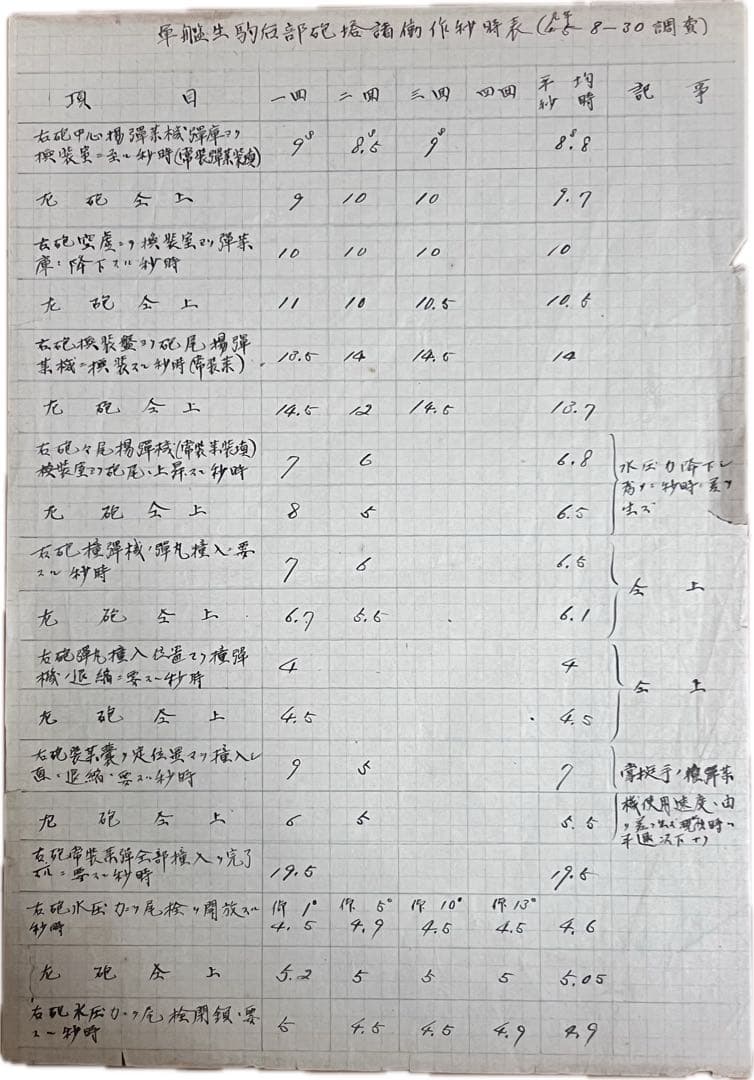 軍艦生駒后部砲塔諸働作秒時表(8-30調査)
項 目 一回 二回 三回 四回 平均秒時 記事
右砲中心揚彈薬機彈庫ヨリ
換装室ニ至ル秒時(常装彈薬装填) 9ˢ 8.5ˢ 9ˢ 8ˢ.8
左砲仝上 9 10 10 9.7
右砲空虚ニテ換装室ヨリ彈薬
庫ニ降下スル秒時 10 10 10 10
左砲仝上 11 10 10.5 10.5
右砲換装盤ヨリ砲尾揚彈
薬機ニ換装スル秒時(常装薬) 13.5 14 14.5 14
左砲仝上 14.5 12 14.5 13.7
右砲々尾揚彈機(常装薬装填)
換装室ヨリ砲尾ニ上昇スル秒時 7 6 6.8
水圧力降下シ
為メニ秒時ニ差ヲ
生ズ
左砲仝上 8 5 6.5
右砲撞彈機ノ彈丸撞入ニ要
スル秒時 7 6 6.5
仝上
左砲仝上 6.7 5.5 6.1
右砲彈丸撞入位置ヨリ撞彈
機ノ退縮ニ要スル秒時 4 4
仝上
左砲仝上 4.5 4.5
右砲装薬嚢ヲ定位置マデ撞入シ
直ニ退縮ニ要スル秒時 9 5 7
掌挺手ノ撞彈薬
機使用速度ニ由
リ差ヲ生ズ
左砲仝上 6 5 5.5
右砲常装薬彈全部撞入ヲ完了
スルニ要スル秒時 19.5 19.5
右砲水圧力ニテ尾栓ヲ開放スル
秒時 仰1° 4.5 仰5° 4.9 仰10° 4.5 仰13° 4.5 4.6
左砲仝上 5.2 5 5 5 5.05
右砲水圧力ニテ尾栓閉鎖ニ要
スル秒時 5 4.5 4.5 4.9 4.9